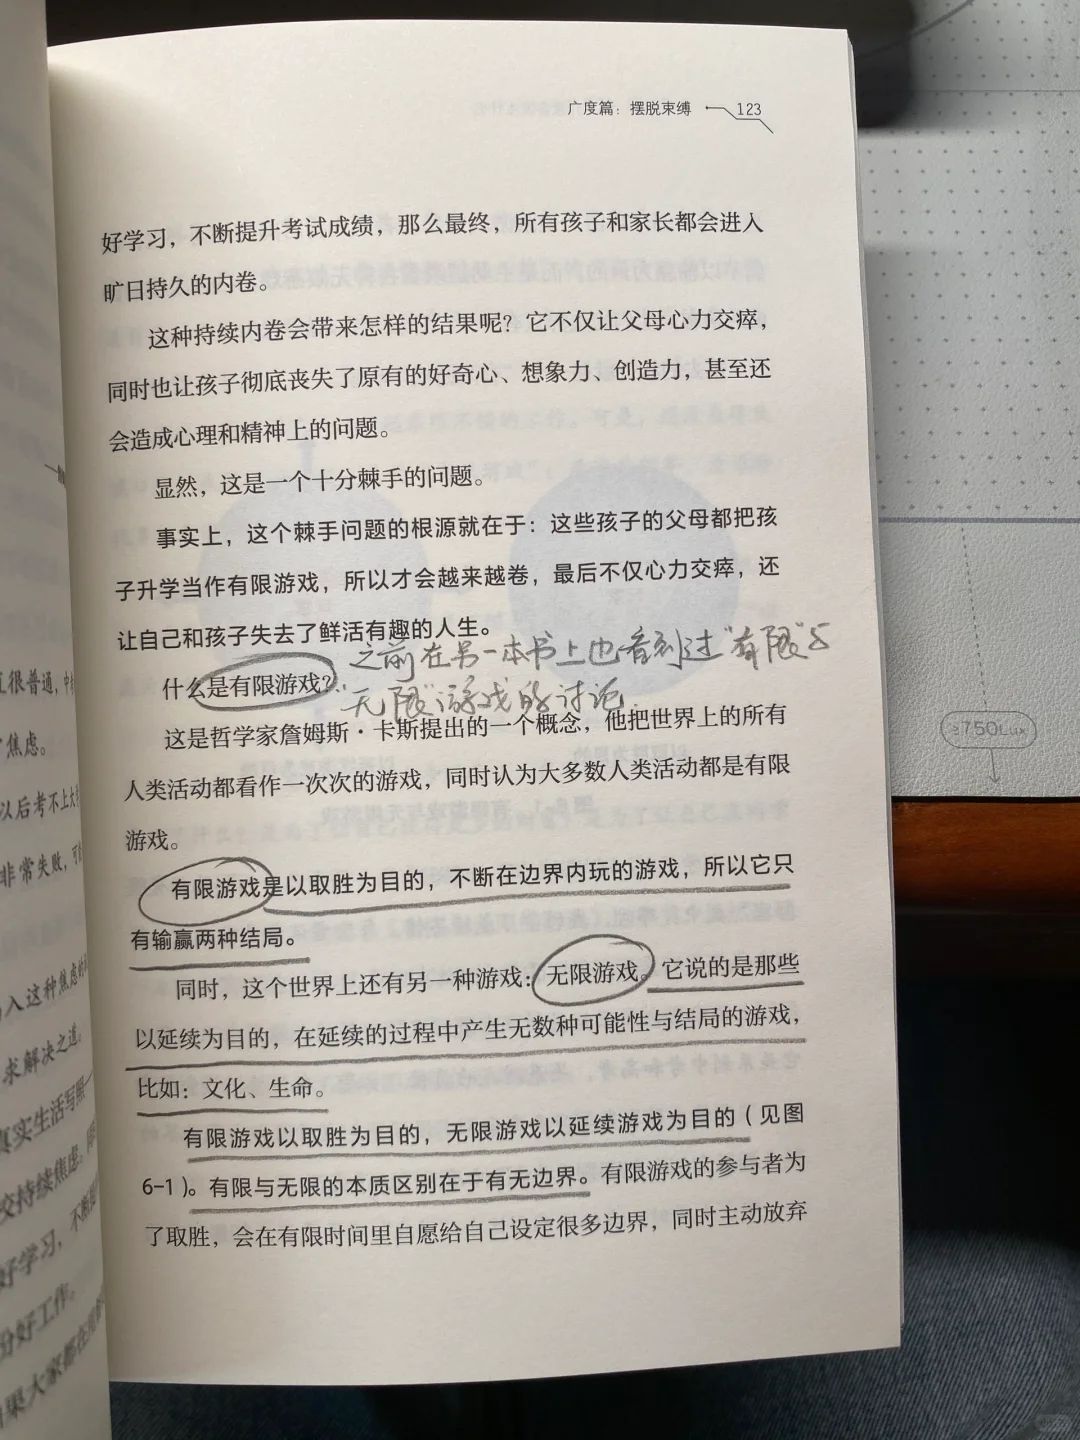 广度篇：摆脱束缚 123
好学习，不断提升考试成绩，那么最终，所有孩子和家长都会进入
旷日持久的内卷。
这种持续内卷会带来怎样的结果呢？它不仅让父母心力交瘁，
同时也让孩子彻底丧失了原有的好奇心、想象力、创造力，甚至还
会造成心理和精神上的问题。
显然，这是一个十分棘手的问题。
事实上，这个棘手问题的根源就在于：这些孩子的父母都把孩
子升学当作有限游戏，所以才会越来越卷，最后不仅心力交瘁，还
让自己和孩子失去了鲜活有趣的人生。
之前在另一本书上也看到过“有限”与
什么是有限游戏？
“无限”游戏的讨论.
这是哲学家詹姆斯·卡斯提出的一个概念，他把世界上的所有
人类活动都看作一次次的游戏，同时认为大多数人类活动都是有限
游戏。
有限游戏是以取胜为目的，不断在边界内玩的游戏，所以它只
有输赢两种结局。
同时，这个世界上还有另一种游戏：无限游戏。它说的是那些
以延续为目的，在延续的过程中产生无数种可能性与结局的游戏，
比如：文化、生命。
有限游戏以取胜为目的，无限游戏以延续游戏为目的（见图
6-1）。有限与无限的本质区别在于有无边界。有限游戏的参与者为
了取胜，会在有限时间里自愿给自己设定很多边界，同时主动放弃
很普通，中
焦虑。
以后考不上大
非常失败，可
入这种焦虑的
求解决之道。
真实生活写照
交持续焦虑。
好学习，不断
份好工作。
果大家都在
≥750Lux